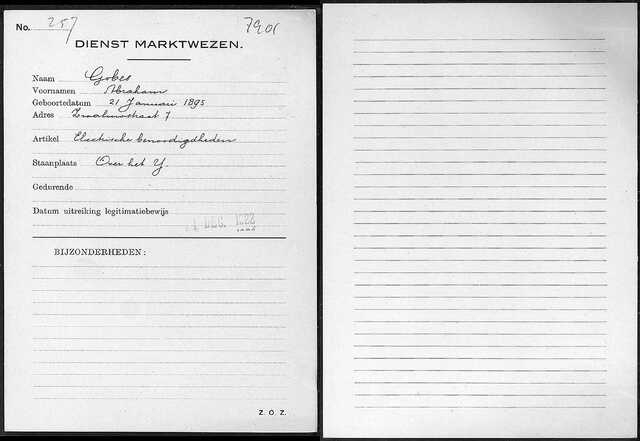 No. 257 7901
DIENST MARKTWEZEN.
Naam Gobes
Voornamen Abraham
Geboortedatum 21 Januari 1895
Adres 7
Artikel Electrische benoodigdheden
Staanplaats Over het Y.
Gedurende
Datum uitreiking legitimatiebewijs
DEC. 1922
BIJZONDERHEDEN:
Z. O. Z.